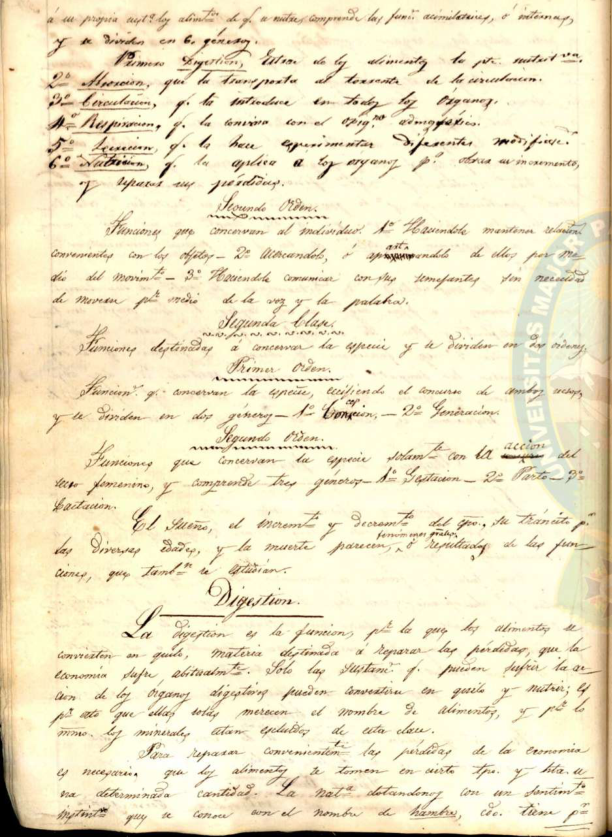 á su propia
y se dividen en 6. géneros.
Primero Digestion, Estrae de los alimentos la pte. nutrit.va
2º Absorcion, que la transporta al torrente de la circulacion.
3º Circulacion, q. la introduce en todos los órganos.
4º Respiracion, q. la conviva con el oxig.no admosférico.
5º q. la hace esperimentar diferentes modificac.s
6º Nutricion, q. la aplica a los organos pª. obrar su incremento,
y reparar sus pérdidas.
Segundo Orden.
Funciones que concervan al individuo. 1º Haciendole mantener relacion.s
convenientes con los objetos – 2º Acercandolo, ó apartandolo de ellos por me
dio del movim.to – 3º Haciendole comunicar con sus semejantes sin necesidad
de moverse pr. medio de la voz y la palabra.
Segunda Clase.
Funciones destinadas á concervar la especie y se dividen en dos órdenes,
Primer orden.
Funcion.s q. concervan la especie, exijiendo el concurso de ambos sexos,
y se dividen en dos generos – 1º – 2º Generacion.
Segundo Orden.
Funciones que concervan la especie solam.te con la accion del
sexo femenino, y comprende tres géneros – 1º Gestacion – 2º Parto – 3º
Lactacion.
El Sueño, el increm.to y decrem.to del cpo., su tránsito pr.
fenómenos grales.
las diversas edades, y la muerte parecen, ó resultados de las fun
ciones, que tamb.n se estudian.
Digestion.
La digestion es la funcion, pr. la que los alimentos se
convierten en quilo, materia destinada á reparar las perdidas, que la
economia sufre, abitualm.te. Solo las Sustan.s q. pueden sufrir la ac
cion de los organos digestivos pueden convertirse en quilo y nutrir; es
pr. esto que ellas solas merecen el nombre de alimentos, y pr. lo
mmo. los minerales estan escluidos de esta clase.
Para reparar convenientem.te las perdidas de la economia
es necesario, que los alimentos se tomen en cierto tpo. y hta. u
na determinada cantidad. La natª. dotandonos con un sentim.to
instint.vo que se conoce con el nombre de hambre, tiene pr.
UNIVERSITAS MAIOR